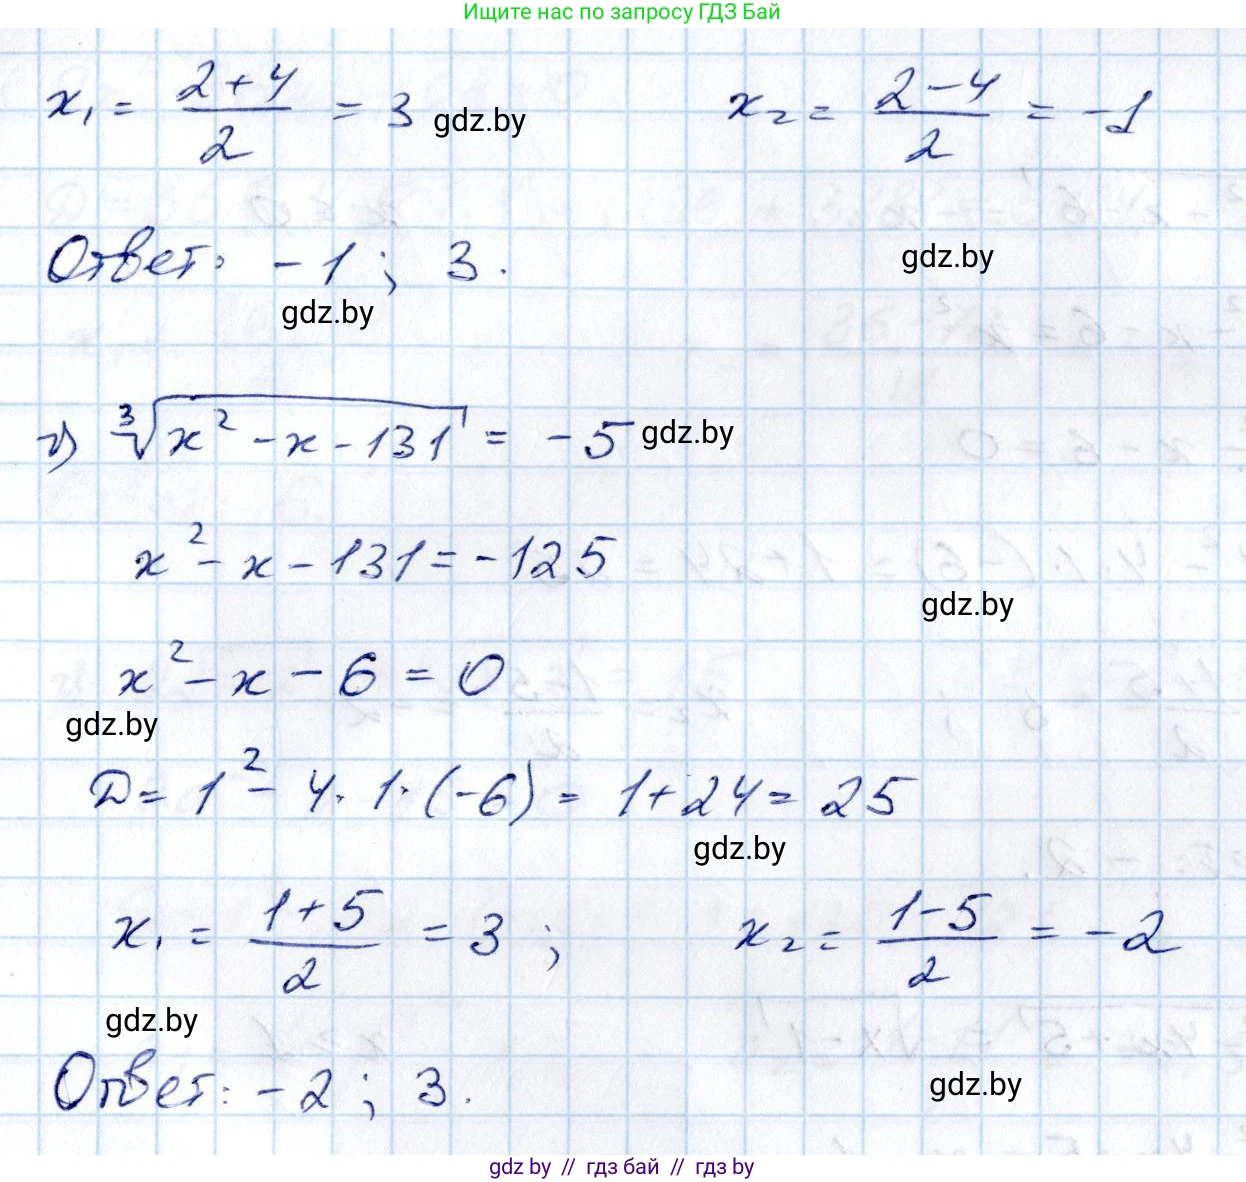 Ищите нас по запросу ГДЗ Бай
x₁ = (2+4)/2 = 3 gdz.by x₂ = (2-4)/2 = -1
Ответ: -1; 3. gdz.by
gdz.by
г) ∛(x² - x - 131) = -5 gdz.by
x² - x - 131 = -125
gdz.by
x² - x - 6 = 0
gdz.by
D = 1² - 4·1·(-6) = 1+24 = 25
gdz.by
x₁ = (1+5)/2 = 3; x₂ = (1-5)/2 = -2
gdz.by
Ответ: -2; 3. gdz.by
gdz by // гдз бай // гдз by